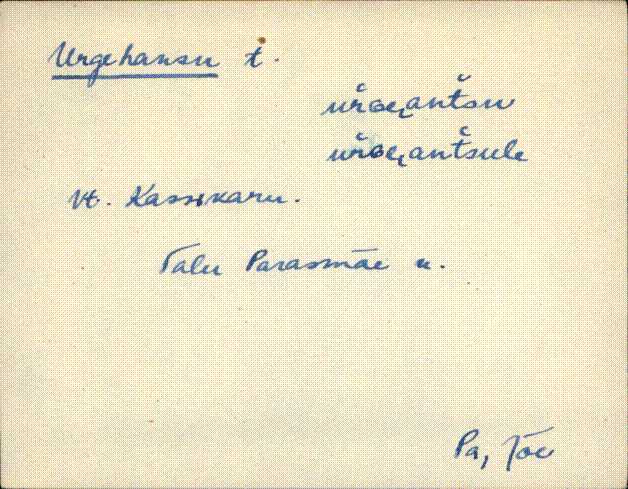 Urgehansu t.
ùrɢe̮antsu
ùrɢe̮antsule
Vt. Kassikaru.
Talu Parasmäe k.
Pa, Jõe